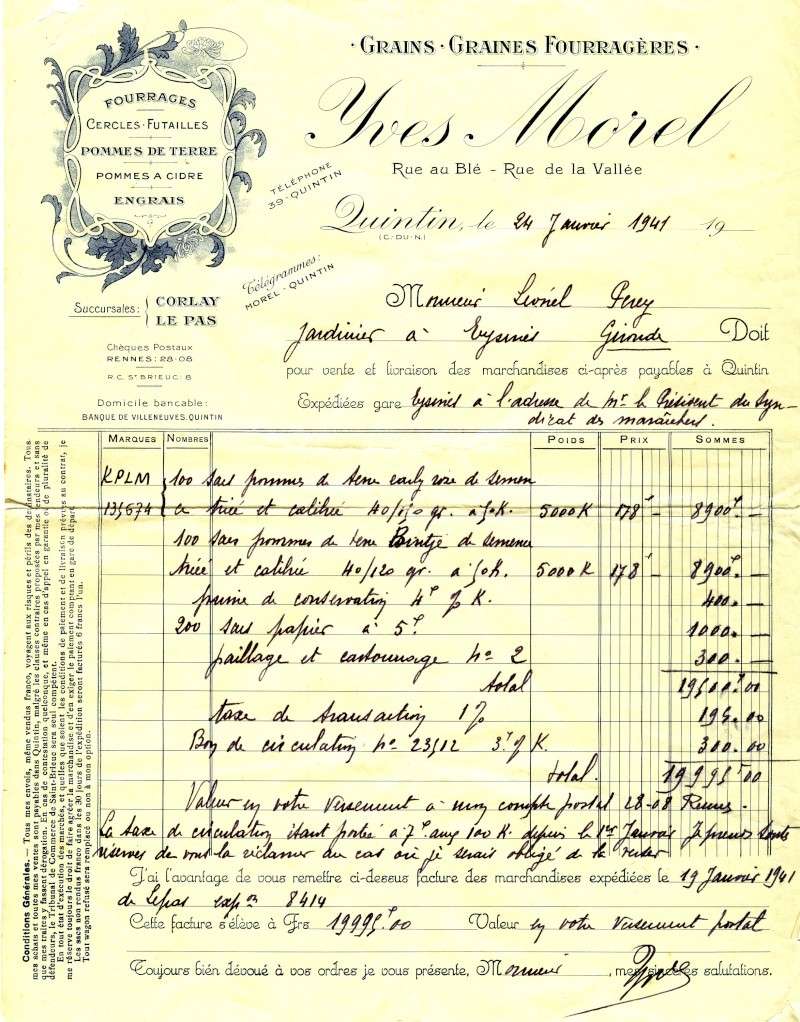 GRAINS · GRAINES FOURRAGÈRES
Yves Morel
Rue au Blé - Rue de la Vallée
FOURRAGES
CERCLES-FUTAILLES
POMMES DE TERRE
POMMES A CIDRE
ENGRAIS
TÉLÉPHONE
39-QUINTIN
Quintin, le 24 Janvier 1941 19
(C.-DU-N.)
Télégrammes:
MOREL-QUINTIN
Succursales: CORLAY
LE PAS
Chèques Postaux
RENNES: 28-08
R.C. ST BRIEUC: 8
Domicile bancable:
BANQUE DE VILLENEUVES, QUINTIN
Monsieur Lionel Perey
Jardinier à Eysines Gironde Doit
pour vente et livraison des marchandises ci-après payables à Quintin
Expédiées gare Eysines à l'adresse de Mr le Président du Syn-
dicat des maraîchers.
MARQUES NOMBRES POIDS PRIX SOMMES
KPLM 100 sacs pommes de terre early rose de semen
135674 ce triée et calibrée 40/120 gr. à 50K. 5000K 178f - 8900f. -
100 sacs pommes de terre Bintje de semence
triée et calibrée 40/120 gr. à 50K. 5000K 178f - 8900f. -
prime de conservation 4f % K. 400. -
200 sacs papier à 5f. 1000. -
paillage et cartonnage no 2 300. -
total 19500f.00
taxe de transaction 1% 195.00
Bon de circulation no 23512 3f. % K. 300.00
total. 19995f00
Valeur en votre versement à mon compte postal 28-08 Rennes.
La taxe de circulation étant portée à 7f. aux 100 K. depuis le 1er Janvier Je prends toute
réserves de vous la réclamer au cas où je serais obligé de la verser
J'ai l'avantage de vous remettre ci-dessus facture des marchandises expédiées le 19 Janvier 1941
de Lepas exp on 8414
Cette facture s'élève à Frs 19995f.00 Valeur en votre versement postal
Toujours bien dévoué à vos ordres je vous présente, Monsieur, mes sincères salutations.
Conditions Générales. — Tous mes envois, même vendus franco, voyagent aux risques et périls des destinataires. Tous
mes achats et toutes mes ventes sont payables dans Quintin, malgré les clauses contraires proposées par mes vendeurs et sans
que mes traites y fassent dérogation. En cas de contestation quelconque, et même en cas d'appel en garantie ou de pluralité de
défendeurs, le Tribunal de Commerce de Saint-Brieuc sera seul compétent.
En tout état d'exécution des marchés, et quelles que soient les conditions de paiement et de livraison prévues au contrat, je
me réserve toujours le droit de faire agréer la marchandise et d'en exiger le paiement comptant en gare de départ.
Les sacs non rendus franco dans les 30 jours de l'expédition seront facturés 6 francs l'un.
Tout wagon refusé sera remplacé ou non à mon option.